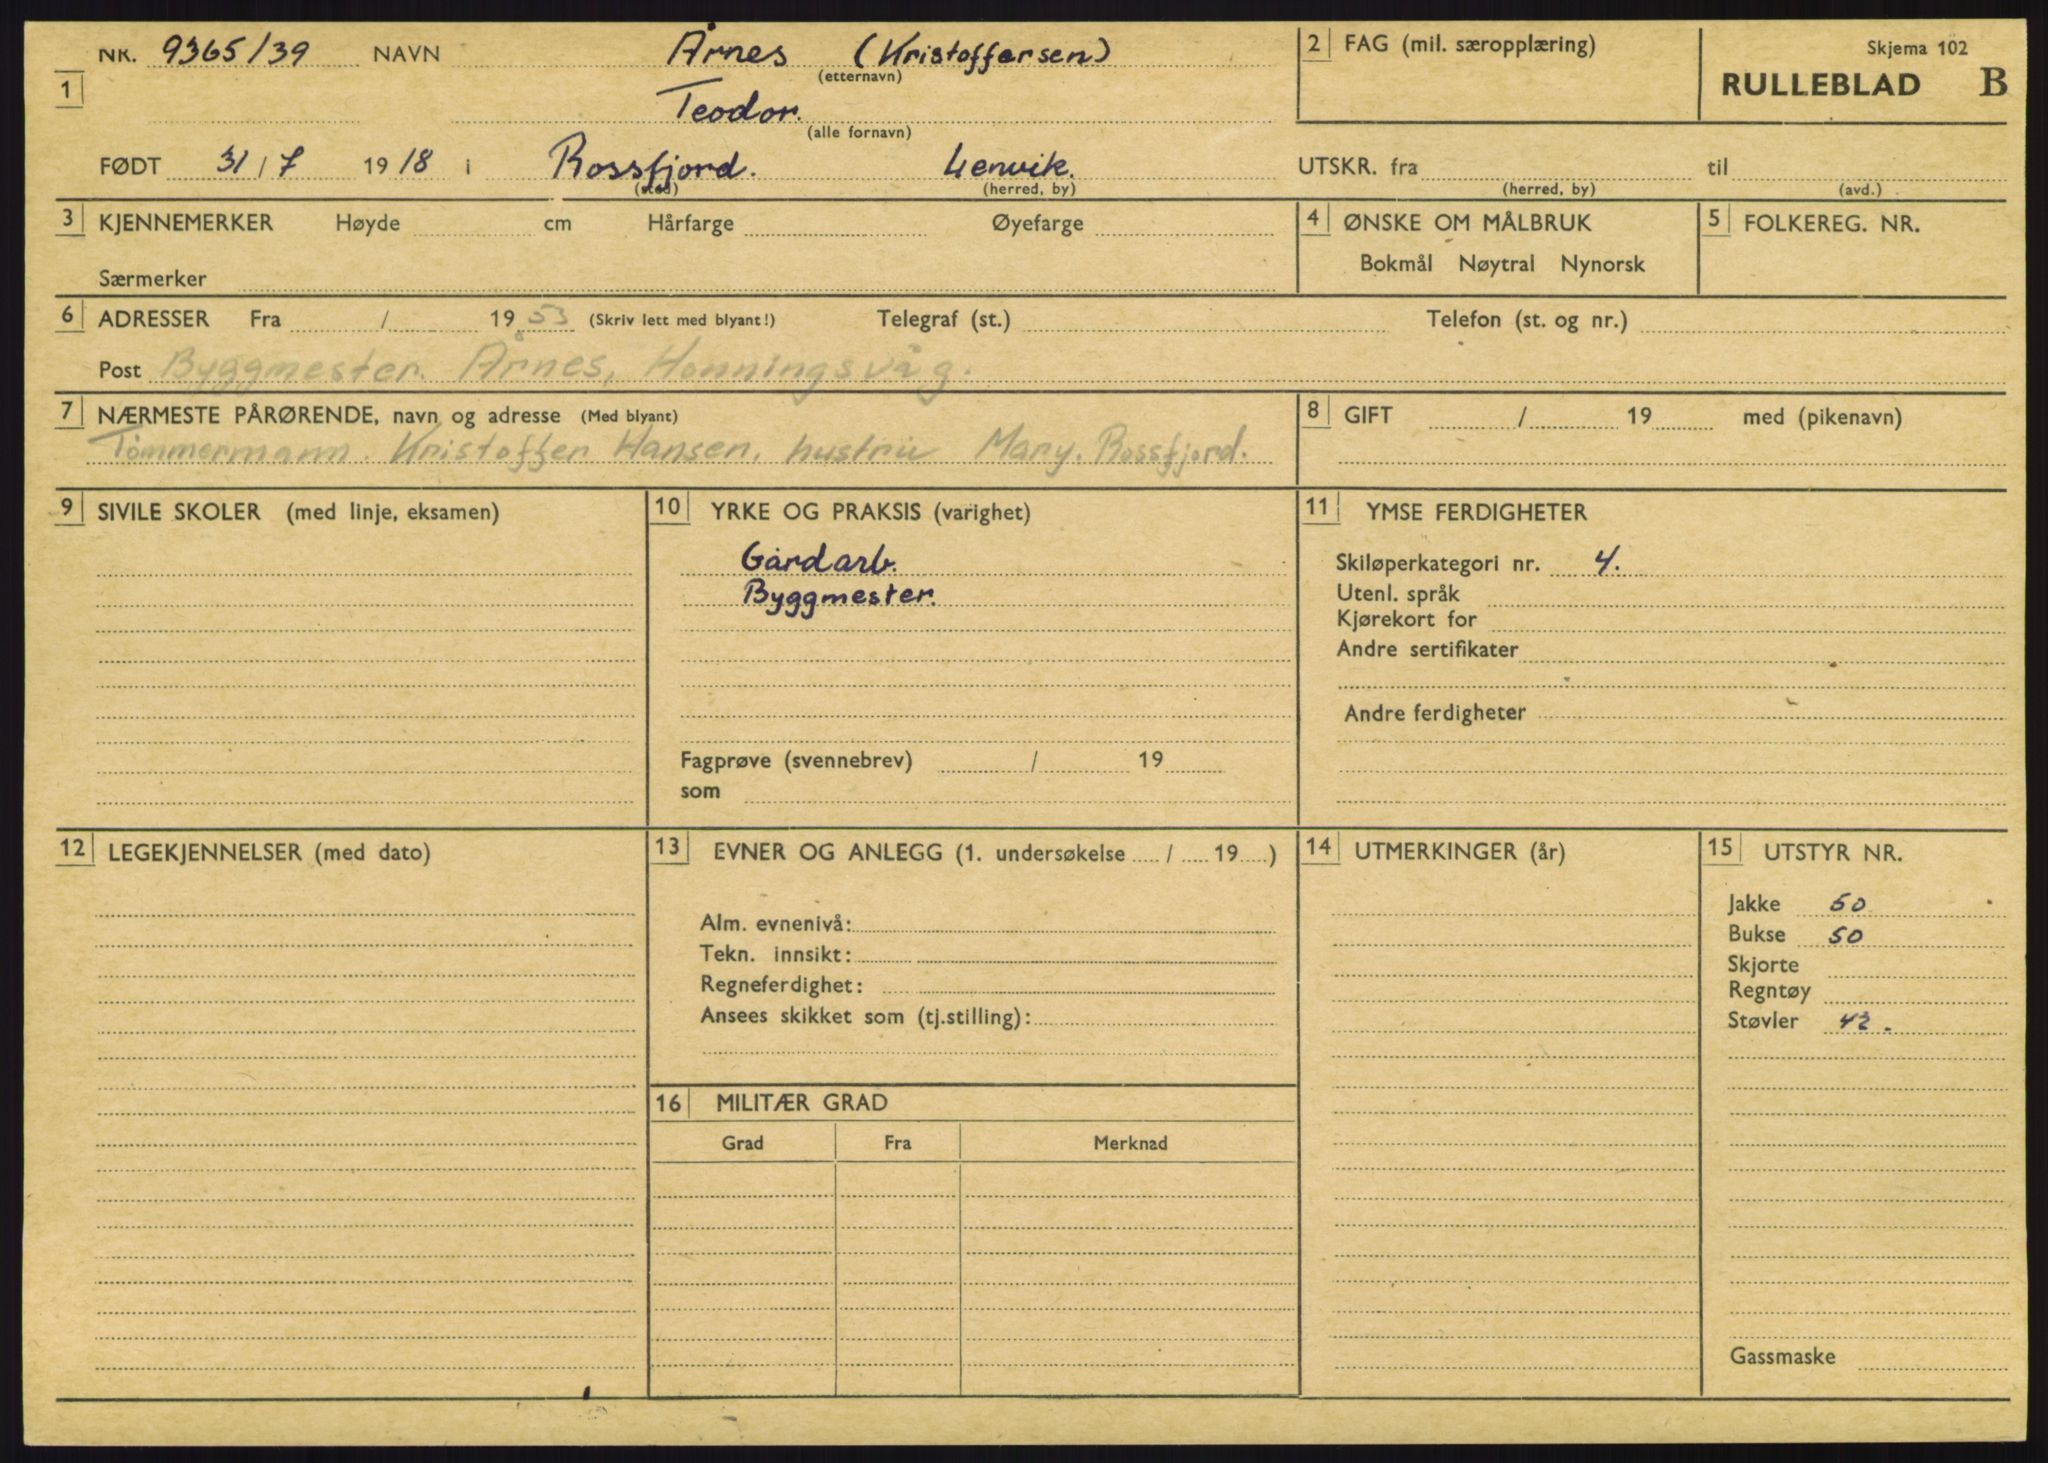 NR. 9365/39 NAVN Årnes (Kristoffersen)
(etternavn)
1
Teodor.
(alle fornavn)
FØDT 31/7 1918 i Rossfjord. Lenvik.
(sted) (herred, by)
2 FAG (mil. særopplæring)
Skjema 102
RULLEBLAD B
UTSKR. fra til
(herred, by) (avd.)
3 KJENNEMERKER Høyde cm Hårfarge Øyefarge
Særmerker
4 ØNSKE OM MÅLBRUK
Bokmål Nøytral Nynorsk
5 FOLKEREG. NR.
6 ADRESSER Fra / 1953 (Skriv lett med blyant!) Telegraf (st.) Telefon (st. og nr.)
Post Byggmester Årnes, Honningsvåg.
7 NÆRMESTE PÅRØRENDE, navn og adresse (Med blyant)
Tømmermann. Kristoffer Hansen, hustru Mary. Rossfjord.
8 GIFT / 19 med (pikenavn)
9 SIVILE SKOLER (med linje, eksamen)
10 YRKE OG PRAKSIS (varighet)
Gårdarb.
Byggmester.
Fagprøve (svennebrev) / 19
som
11 YMSE FERDIGHETER
Skiløperkategori nr. 4.
Utenl. språk
Kjørekort for
Andre sertifikater
Andre ferdigheter
12 LEGEKJENNELSER (med dato)
13 EVNER OG ANLEGG (1. undersøkelse / 19 )
Alm. evnenivå:
Tekn. innsikt:
Regneferdighet:
Ansees skikket som (tj.stilling):
16 MILITÆR GRAD
Grad Fra Merknad
14 UTMERKINGER (år)
15 UTSTYR NR.
Jakke 50
Bukse 50
Skjorte
Regntøy
Støvler 42.
Gassmaske